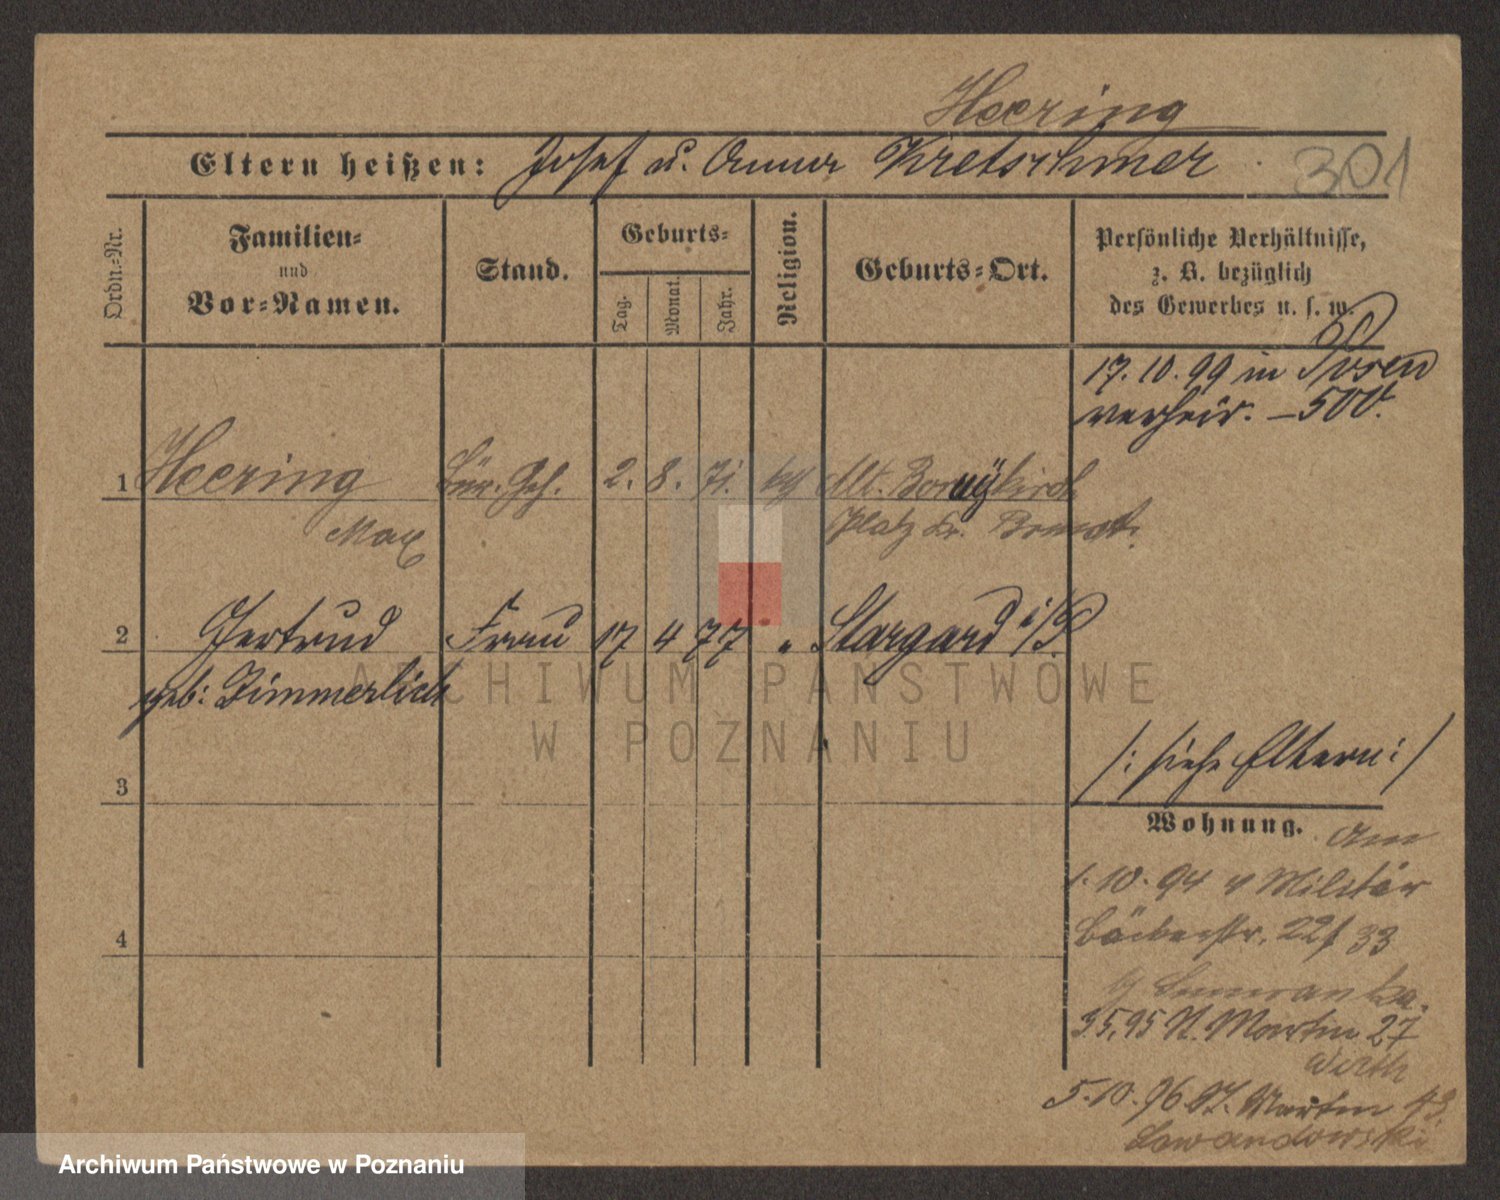 Heering
Eltern heißen: Josef u. Anna Kretschmer
301
Ordn.-Nr.
Familien-
und
Vor-Namen.
Stand.
Geburts-
Tag.
Monat.
Jahr.
Religion.
Geburts-Ort.
Persönliche Verhältnisse,
z. B. bezüglich
des Gewerbes u. s. w.
17. 10. 99 in Posen
verheir. – 500.
1 Heering Bür. Geh. 2. 8. 71. Alt.
Max Platz Kr. Bomst.
2 Gertrud Frau 17 4 77 " Stargard i/P.
geb: Zimmerlich
/: siehe Eltern :/
3
Wohnung. Am
1. 10. 94 v Militär
Bäckerstr. 22/23
4
3.5.95 St. Martin 27
Wirth
5. 10. 96 St. Martin 43
Lewandowski
ARCHIWUM PAŃSTWOWE
W POZNANIU
Archiwum Państwowe w Poznaniu